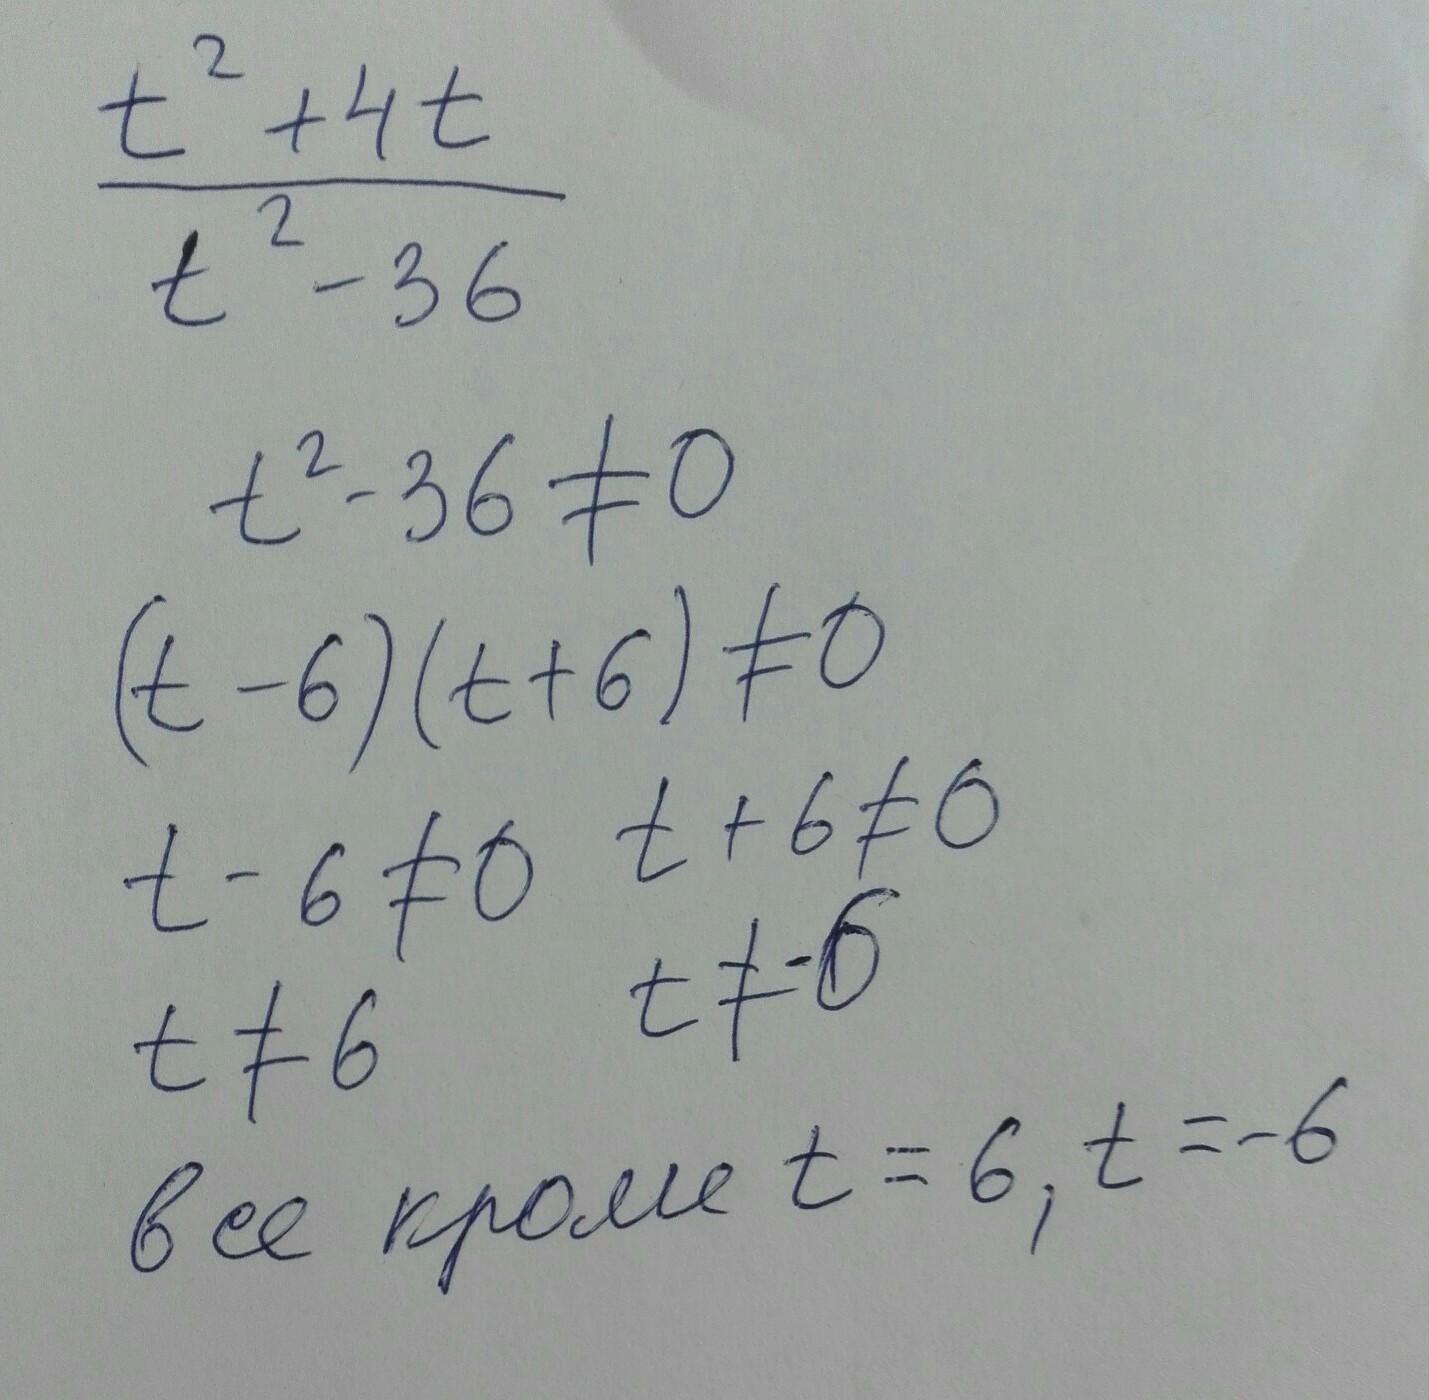 t² + 4t
t² - 36
t² - 36 ≠ 0
(t - 6)(t + 6) ≠ 0
t - 6 ≠ 0 t + 6 ≠ 0
t ≠ 6 t ≠ -6
все кроме t = 6, t = -6